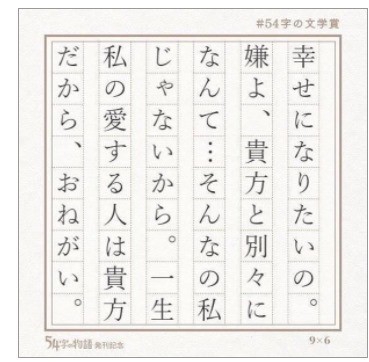 #54字の文学賞
幸せになりたいの。
嫌よ、貴方と別々に
なんて…そんなの私
じゃないから。一生
私の愛する人は貴方
だから、おねがい。
54字の物語 発刊記念
9×6